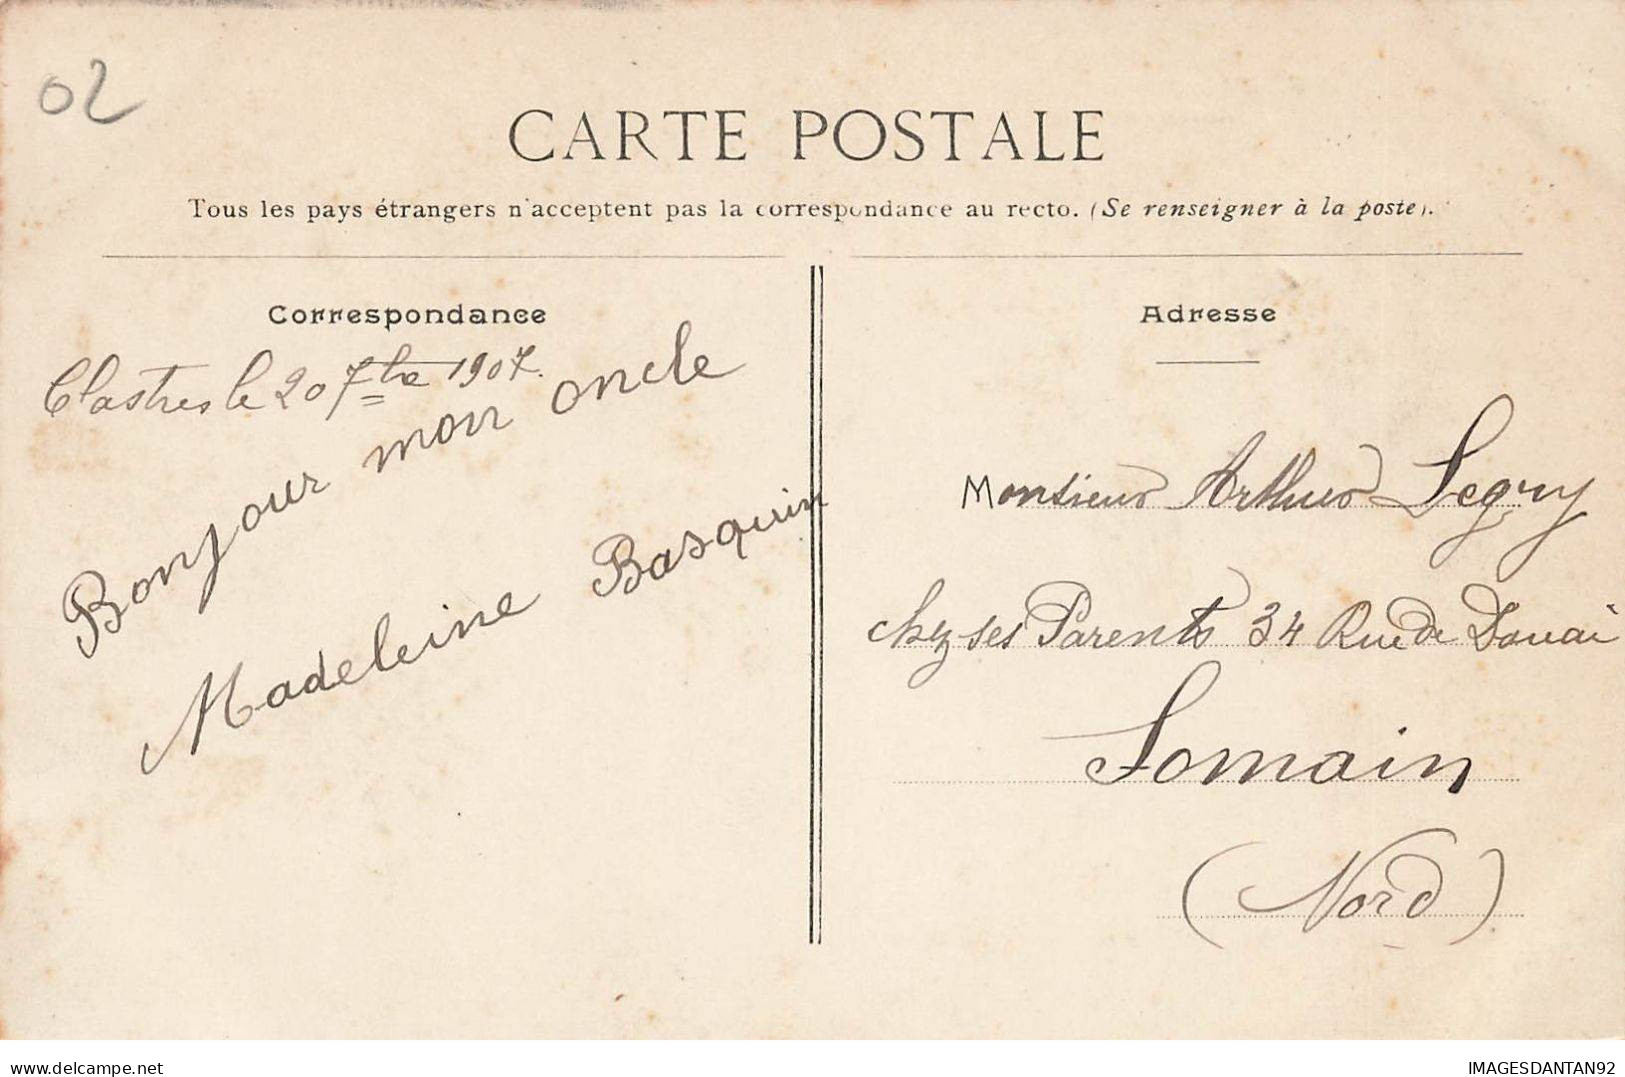 02
CARTE POSTALE
Tous les pays étrangers n'acceptent pas la correspondance au recto. (Se renseigner à la poste).
Correspondance
Clastres le 20 7bre 1907.
Bonjour mon oncle
Madeleine Basquin
Adresse
Monsieur Arthur Legry
chez ses Parents 34 Rue de Douai
Somain
(Nord)
delcampe.net
IMAGESDANTAN92